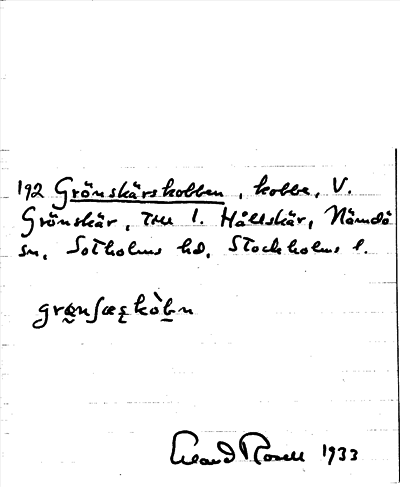 192 Grönskärskobben, kobbe, V.
Grönskär, TRE l. Hållskär, Nämdö
sn, Sotholms hd, Stockholms l.
Erland Rosell 1933